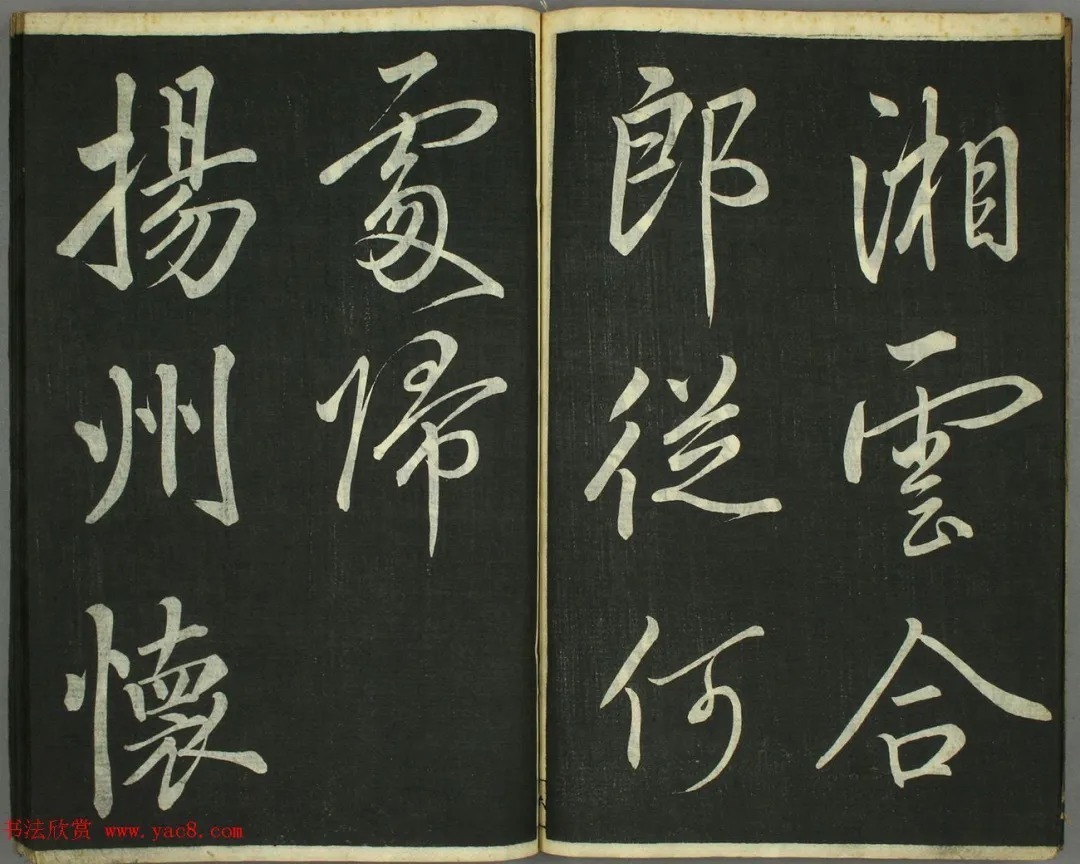 湘雲合
郎從何
處歸
揚州懷
书法欣赏 www.yac8.com